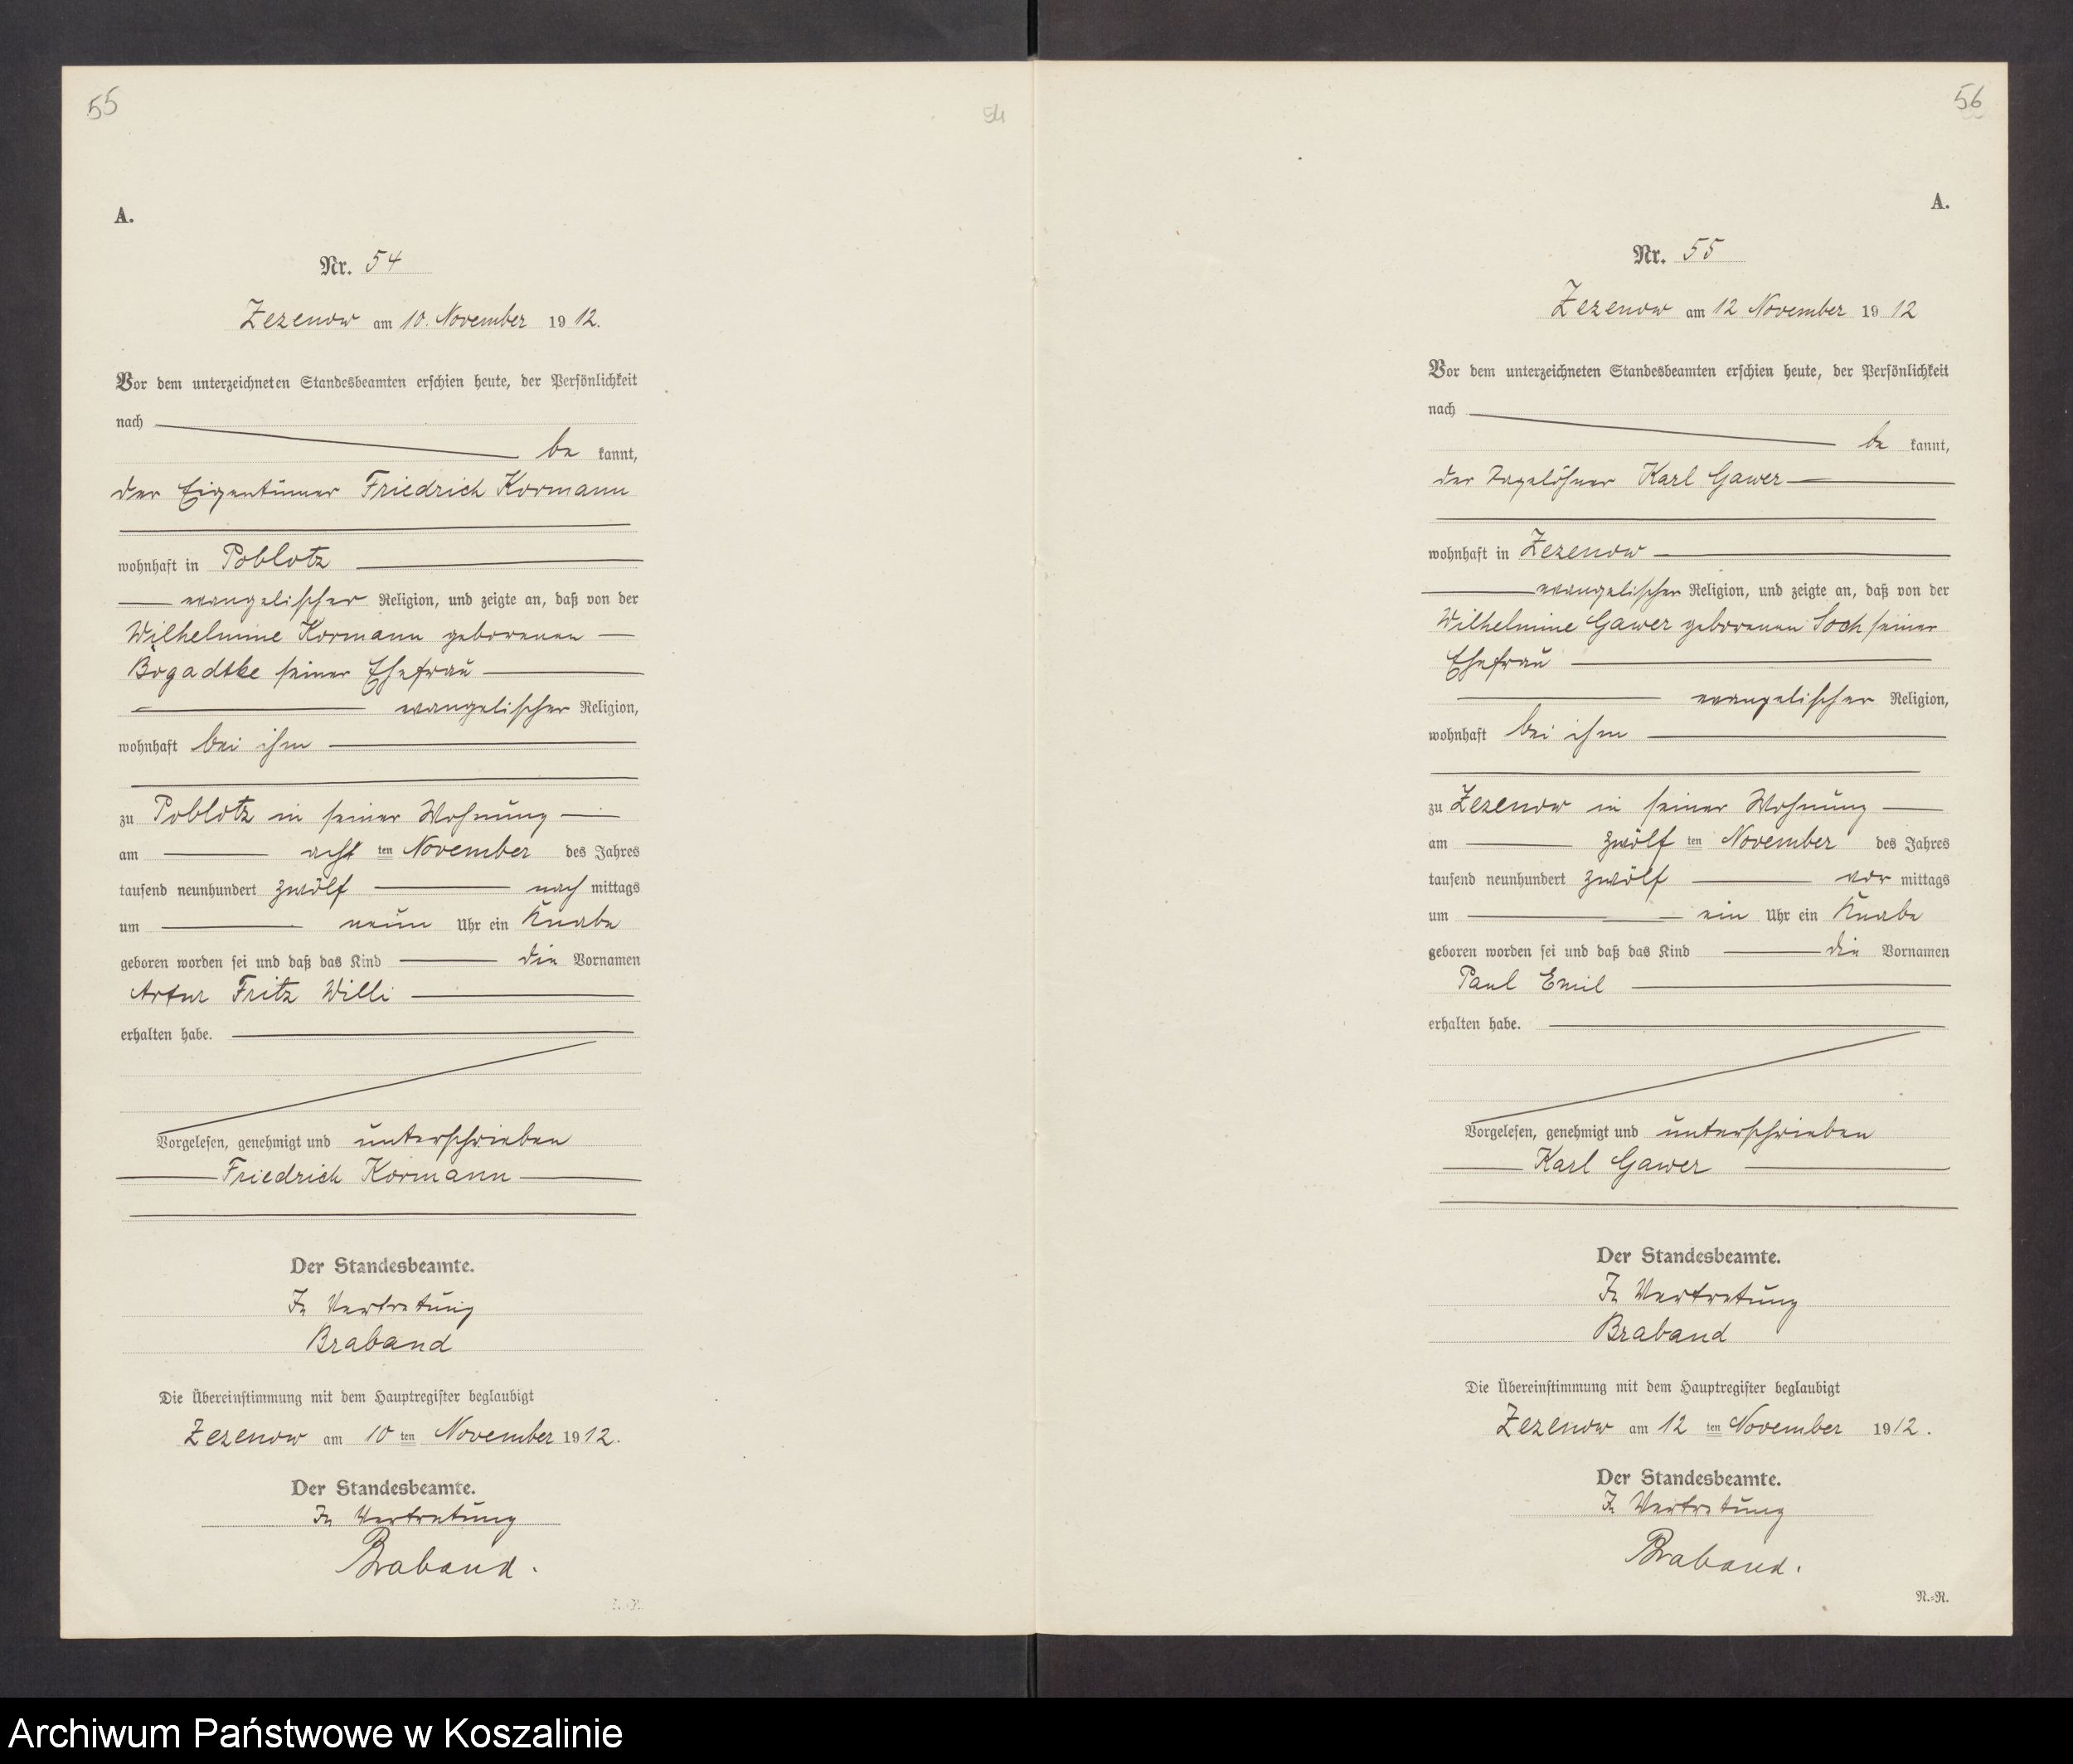 55
54
A.
Nr. 54
Zezenow am 10. November 1912.
Vor dem unterzeichneten Standesbeamten erschien heute, der Persönlichkeit
nach
be kannt,
der Eigentümer Friedrich Kormann
wohnhaft in Poblotz
evangelischer Religion, und zeigte an, daß von der
Wilhelmine Kormann geborenen
Bogadtke seiner Ehefrau
evangelischer Religion,
wohnhaft bei ihm
zu Poblotz in seiner Wohnung
am acht ten November des Jahres
tausend neunhundert zwölf nach mittags
um neun Uhr ein Knabe
geboren worden sei und daß das Kind die Vornamen
Artur Fritz Willi
erhalten habe.
Vorgelesen, genehmigt und unterschrieben
Friedrich Kormann
Der Standesbeamte.
In Vertretung
Braband
Die Übereinstimmung mit dem Hauptregister beglaubigt
Zezenow am 10 ten November 1912.
Der Standesbeamte.
In Vertretung
Braband.
56
A.
Nr. 55
Zezenow am 12 November 1912
Vor dem unterzeichneten Standesbeamten erschien heute, der Persönlichkeit
nach
be kannt,
der Tagelöhner Karl Gawer
wohnhaft in Zezenow
evangelischer Religion, und zeigte an, daß von der
Wilhelmine Gawer geborenen Soch seiner
Ehefrau
evangelischer Religion,
wohnhaft bei ihm
zu Zezenow in seiner Wohnung
am zwölf ten November des Jahres
tausend neunhundert zwölf vor mittags
um ein Uhr ein Knabe
geboren worden sei und daß das Kind die Vornamen
Paul Emil
erhalten habe.
Vorgelesen, genehmigt und unterschrieben
Karl Gawer
Der Standesbeamte.
In Vertretung
Braband
Die Übereinstimmung mit dem Hauptregister beglaubigt
Zezenow am 12 ten November 1912.
Der Standesbeamte.
In Vertretung
Braband.
N.-R.
Archiwum Państwowe w Koszalinie